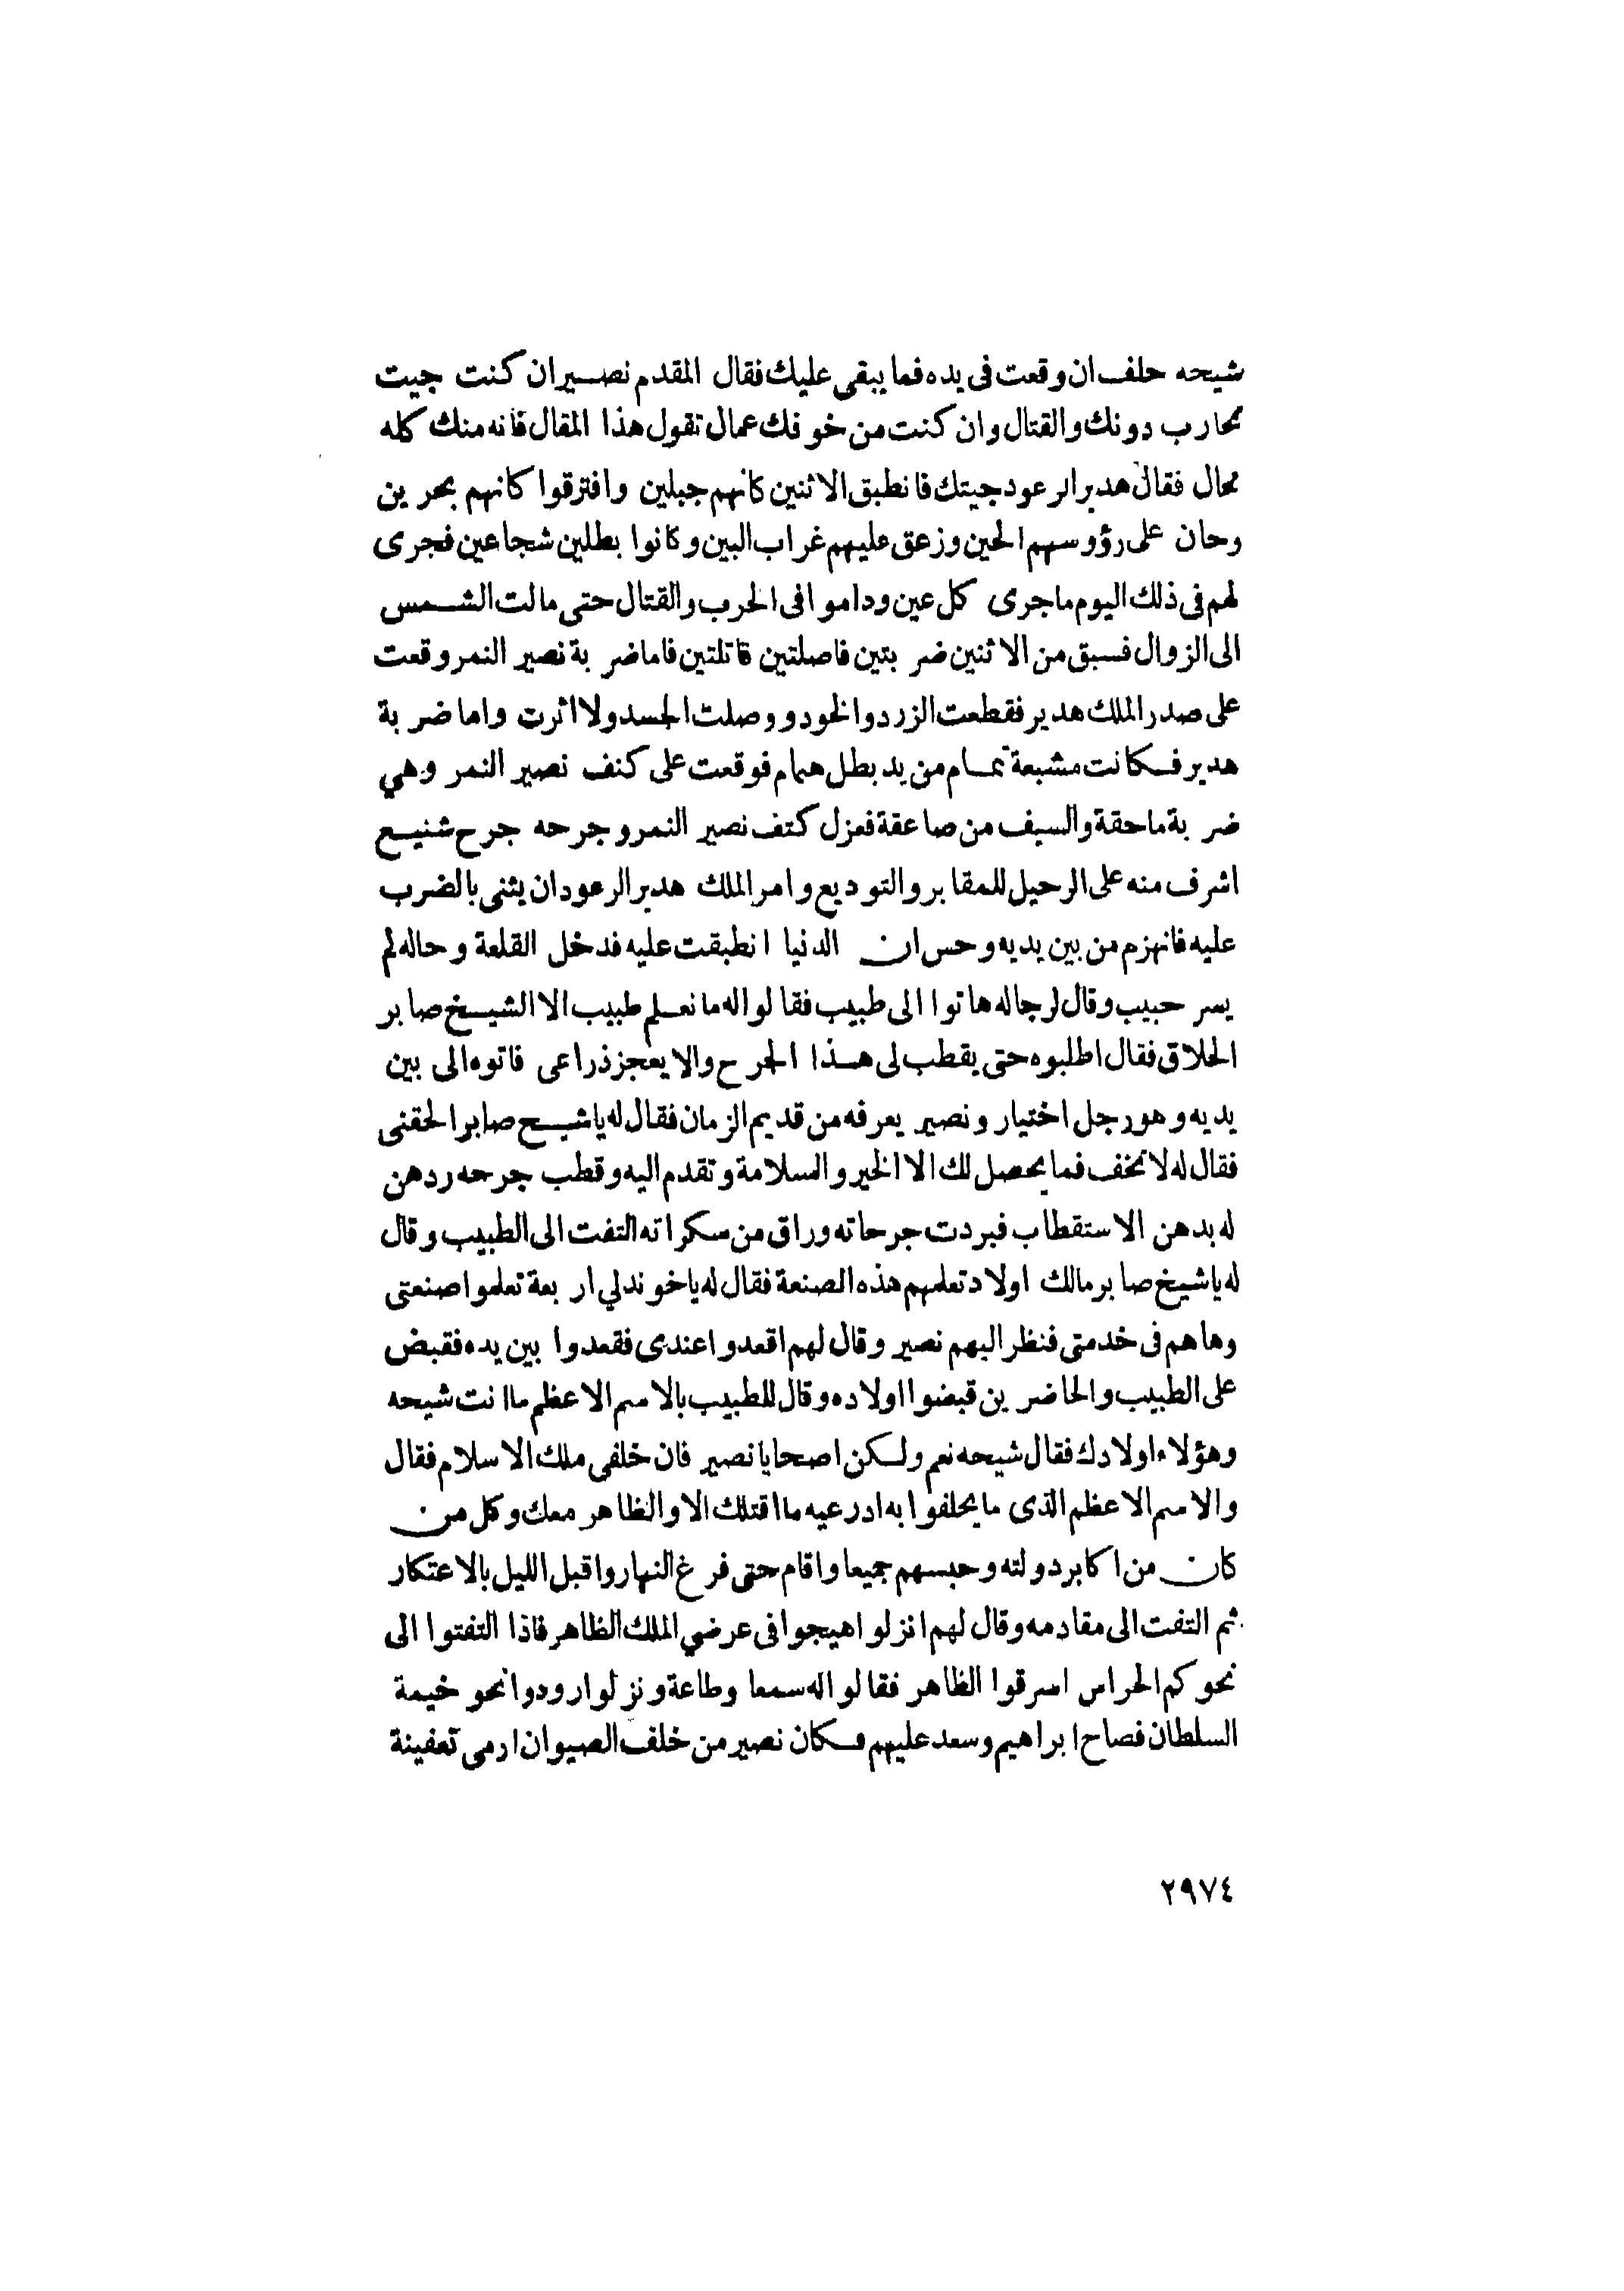 شيحه حلف ان وقعت فى يده فما يبقى عليك فقال المقدم نصير ان كنت جيت
تحارب دونك والقتال وان كنت من خوفك عمال تقول هذا المقال فانه منك كله
محال فقال هدير الرعود جيتك فانطبق الاثنين كانهم جبلين وافترقوا كانهم بحرين
وحان على رؤوسهم الحين وزعق عليهم غراب البين وكانوا بطلين شجاعين فجرى
لهم فى ذلك اليوم ما جرى كل عين وداموا فى الحرب والقتال حتى مالت الشمس
الى الزوال فسبق من الاثنين ضربتين فاصلتين قاتلتين فاما ضربة نصير النمر وقعت
على صدر الملك هدير فقطعت الزرد والخود ووصلت الجسد ولا اثرت واما ضربة
هدير فكانت مشبعة تمام من يد بطل همام فوقعت على كنف نصير النمر وهي
ضربة ماحقة والسيف من صاعقة فعزل كتف نصير النمر وجرحه جرح شنيع
اشرف منه على الرحيل للمقابر والتوديع وامر الملك هدير الرعود ان يثنى بالضرب
عليه فانهزم من بين يديه وحس ان الدنيا انطبقت عليه فدخل القلعة وحاله لم
يسر حبيب وقال لرجاله هاتوا الى طبيب فقالوا له ما نعلم طبيب الا الشيخ صابر
الحلاق فقال اطلبوه حتى يقطب لى هذا الجرح والا يعجز ذراعى فاتوه الى بين
يديه وهو رجل اختيار ونصير يعرفه من قديم الزمان فقال له يا شيح صابر الحقنى
فقال له لا تخف فما يحصل لك الا الخير والسلامة وتقدم اليه وقطب جرحه ردهن
له بدهن الاستقطاب فبردت جرحاته وراق من سكراته التفت الى الطبيب وقال
له يا شيخ صابر مالك اولاد تعلمهم هذه الصنعة فقال له يا خوند لي اربعة تعلموا صنعتى
وهاهم فى خدمتى فنظر اليهم نصير وقال لهم اقعدوا عندى فقعدوا بين يده فقبض
على الطبيب والحاضرين قبضوا اولاده وقال للطبيب بالاسم الاعظم ما انت شيحه
وهؤلاء اولادك فقال شيحه نعم ولكن اصحا يا نصير فان خلفى ملك الاسلام فقال
والاسم الاعظم الذى ما يحلفوا به ادرعيه ما اقتلك الا والظاهر معك وكل من
كان من اكابر دولته وحبسهم جميعا واقام حتى فرغ النهار واقبل الليل بالاعتكار
ثم التفت الى مقادمه وقال لهم انزلوا هيجوا فى عرضي الملك الظاهر فاذا التفتوا الى
نحوكم الحراس اسرقوا الظاهر فقالوا له سمعا وطاعة ونزلوا رودوا نحو خيمة
السلطان فصاح ابراهيم وسعد عليهم فكان نصير من خلف الصيوان ارمى تعفينة
٢٩٧٤